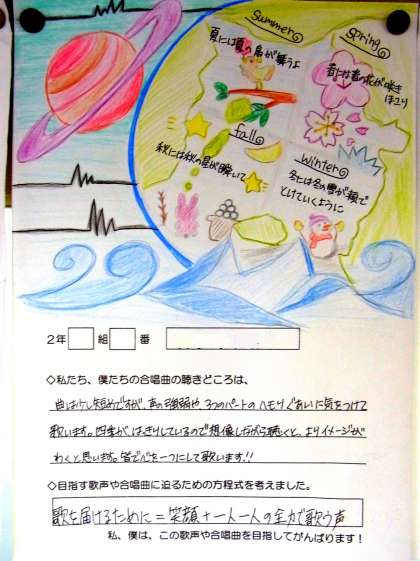 Summer
夏には夏の鳥が舞うよ
Spring
春には春の花が咲き
ほこり
fall
秋には秋の星が瞬いて
Winter
冬には冬の雪が風で
とけていくように
2年 組 番
◇私たち、僕たちの合唱曲の聴きどころは、
曲は少し短めですが、声の強弱や、3つのパートのハモりぐあいに気をつけて
歌います。四季が、はっきりしているので想像しながら聴くと、よりイメージが
わくと思います。皆で心を一つにして歌います!!
◇目指す歌声や合唱曲に迫るための方程式を考えました。
歌を届けるために=笑顔+一人一人の全力で歌う声
私、僕は、この歌声や合唱曲を目指してがんばります!